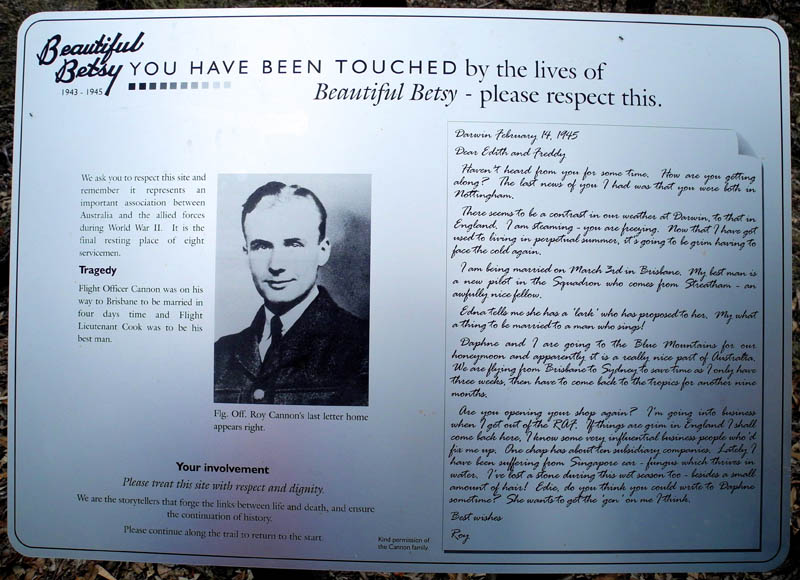 Beautiful
Betsy
1943 - 1945
YOU HAVE BEEN TOUCHED by the lives of
Beautiful Betsy - please respect this.
We ask you to respect this site and
remember it represents an
important association between
Australia and the allied forces
during World War II. It is the
final resting place of eight
servicemen.
Tragedy
Flight Officer Cannon was on his
way to Brisbane to be married in
four days time and Flight
Lieutenant Cook was to be his
best man.
Flg. Off. Roy Cannon's last letter home
appears right.
Your involvement
Please treat this site with respect and dignity.
We are the storytellers that forge the links between life and death, and ensure
the continuation of history.
Please continue along the trail to return to the start.
Kind permission of
the Cannon family.
Darwin February 14, 1945
Dear Edith and Freddy
Haven't heard from you for some time. How are you getting
along? The last news of you I had was that you were both in
Nottingham.
There seems to be a contrast in our weather at Darwin, to that in
England. I am steaming - you are freezing. Now that I have got
used to living in perpetual summer, it's going to be grim having to
face the cold again.
I am being married on March 3rd in Brisbane. My best man is
a new pilot in the Squadron who comes from Streatham - an
awfully nice fellow.
Edna tells me she has a 'lark' who has proposed to her. My what
a thing to be married to a man who sings!
Daphne and I are going to the Blue Mountains for our
honeymoon and apparently it is a really nice part of Australia.
We are flying from Brisbane to Sydney to save time as I only have
three weeks, then have to come back to the tropics for another nine
months.
Are you opening your shop again? I'm going into business
when I get out of the RAF. If things are grim in England I shall
come back here, I know some very influential business people who'd
fix me up. One chap has about ten subsidiary companies. Lately I
have been suffering from Singapore ear - fungus which thrives in
water. I've lost a stone during this wet season too - besides a small
amount of hair! Edie, do you think you could write to Daphne
sometime? She wants to get the 'gen' on me I think.
Best wishes
Roy